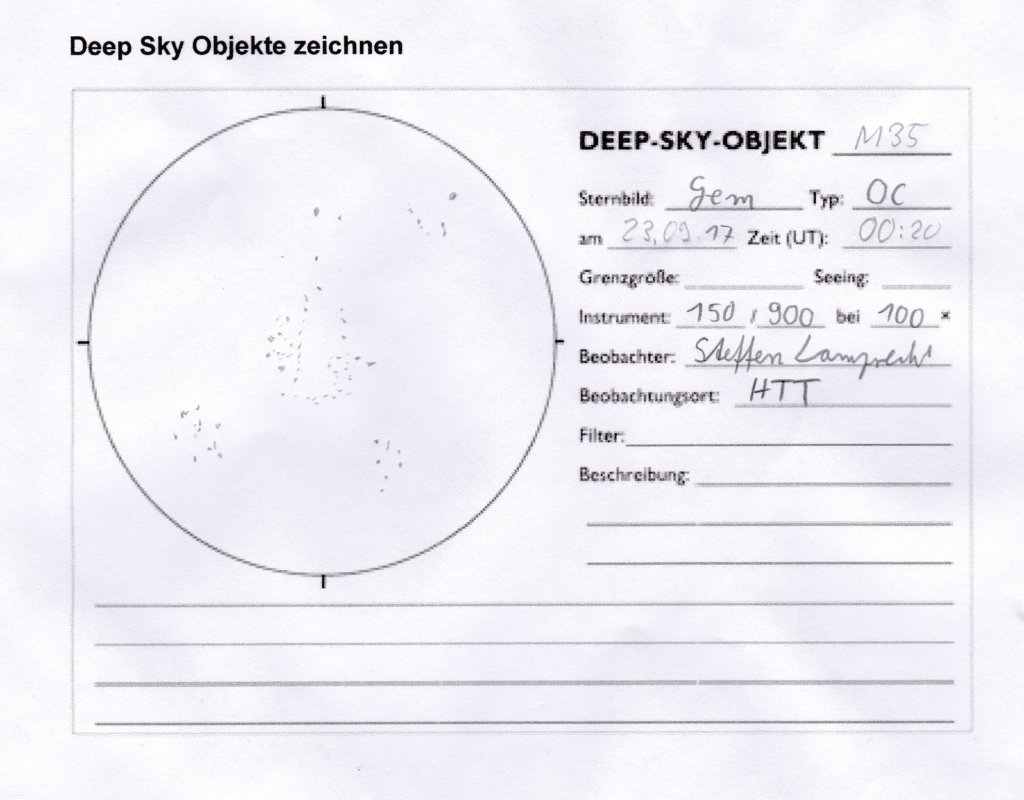 Deep Sky Objekte zeichnen
DEEP-SKY-OBJEKT M35
Sternbild: Gem Typ: OC
am 23.09.17 Zeit (UT): 00:20
Grenzgröße: Seeing:
Instrument: 150 / 900 bei 100 x
Beobachter: Steffen Lamprecht
Beobachtungsort: HTT
Filter:
Beschreibung: